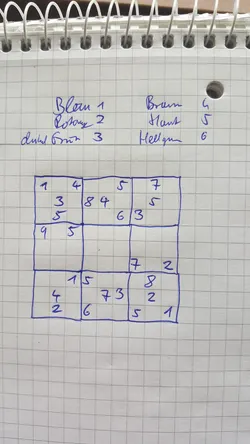 Blau 1 Braun 4
Rotorange 2 Haut 5
dunkel Grün 3 Hellgrün 6
1 4 5 7
3 8 4 5
5 6 3
9 5
7 2
1 5 8
4 7 3 2
2 6 5 1